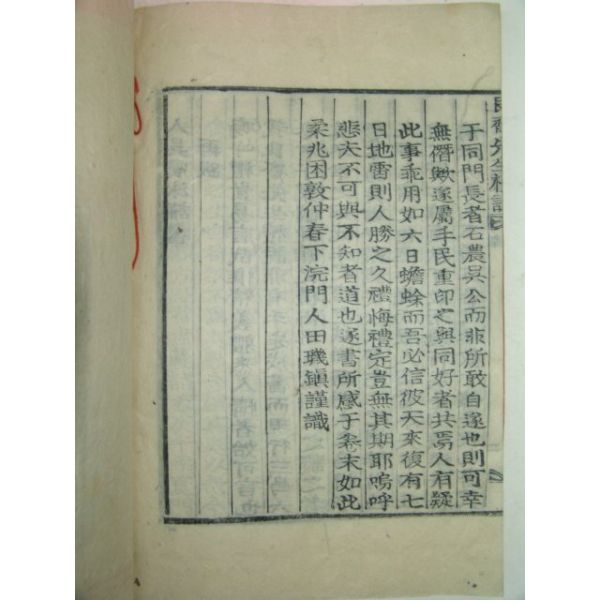 艮齋先生禮說
于同門長者石農吳公而非所敢自遂也則可幸
無僭歟遂屬手民重印之與同好者共焉人有疑
此事乖用如六日蟾蜍而吾必信彼天來復有七
日地雷則人勝之久禮悔禮定豈無其期耶嗚呼
悲夫不可與不知者道也遂書所感于卷末如此
柔兆困敦仲春下浣門人田璣鎭謹識